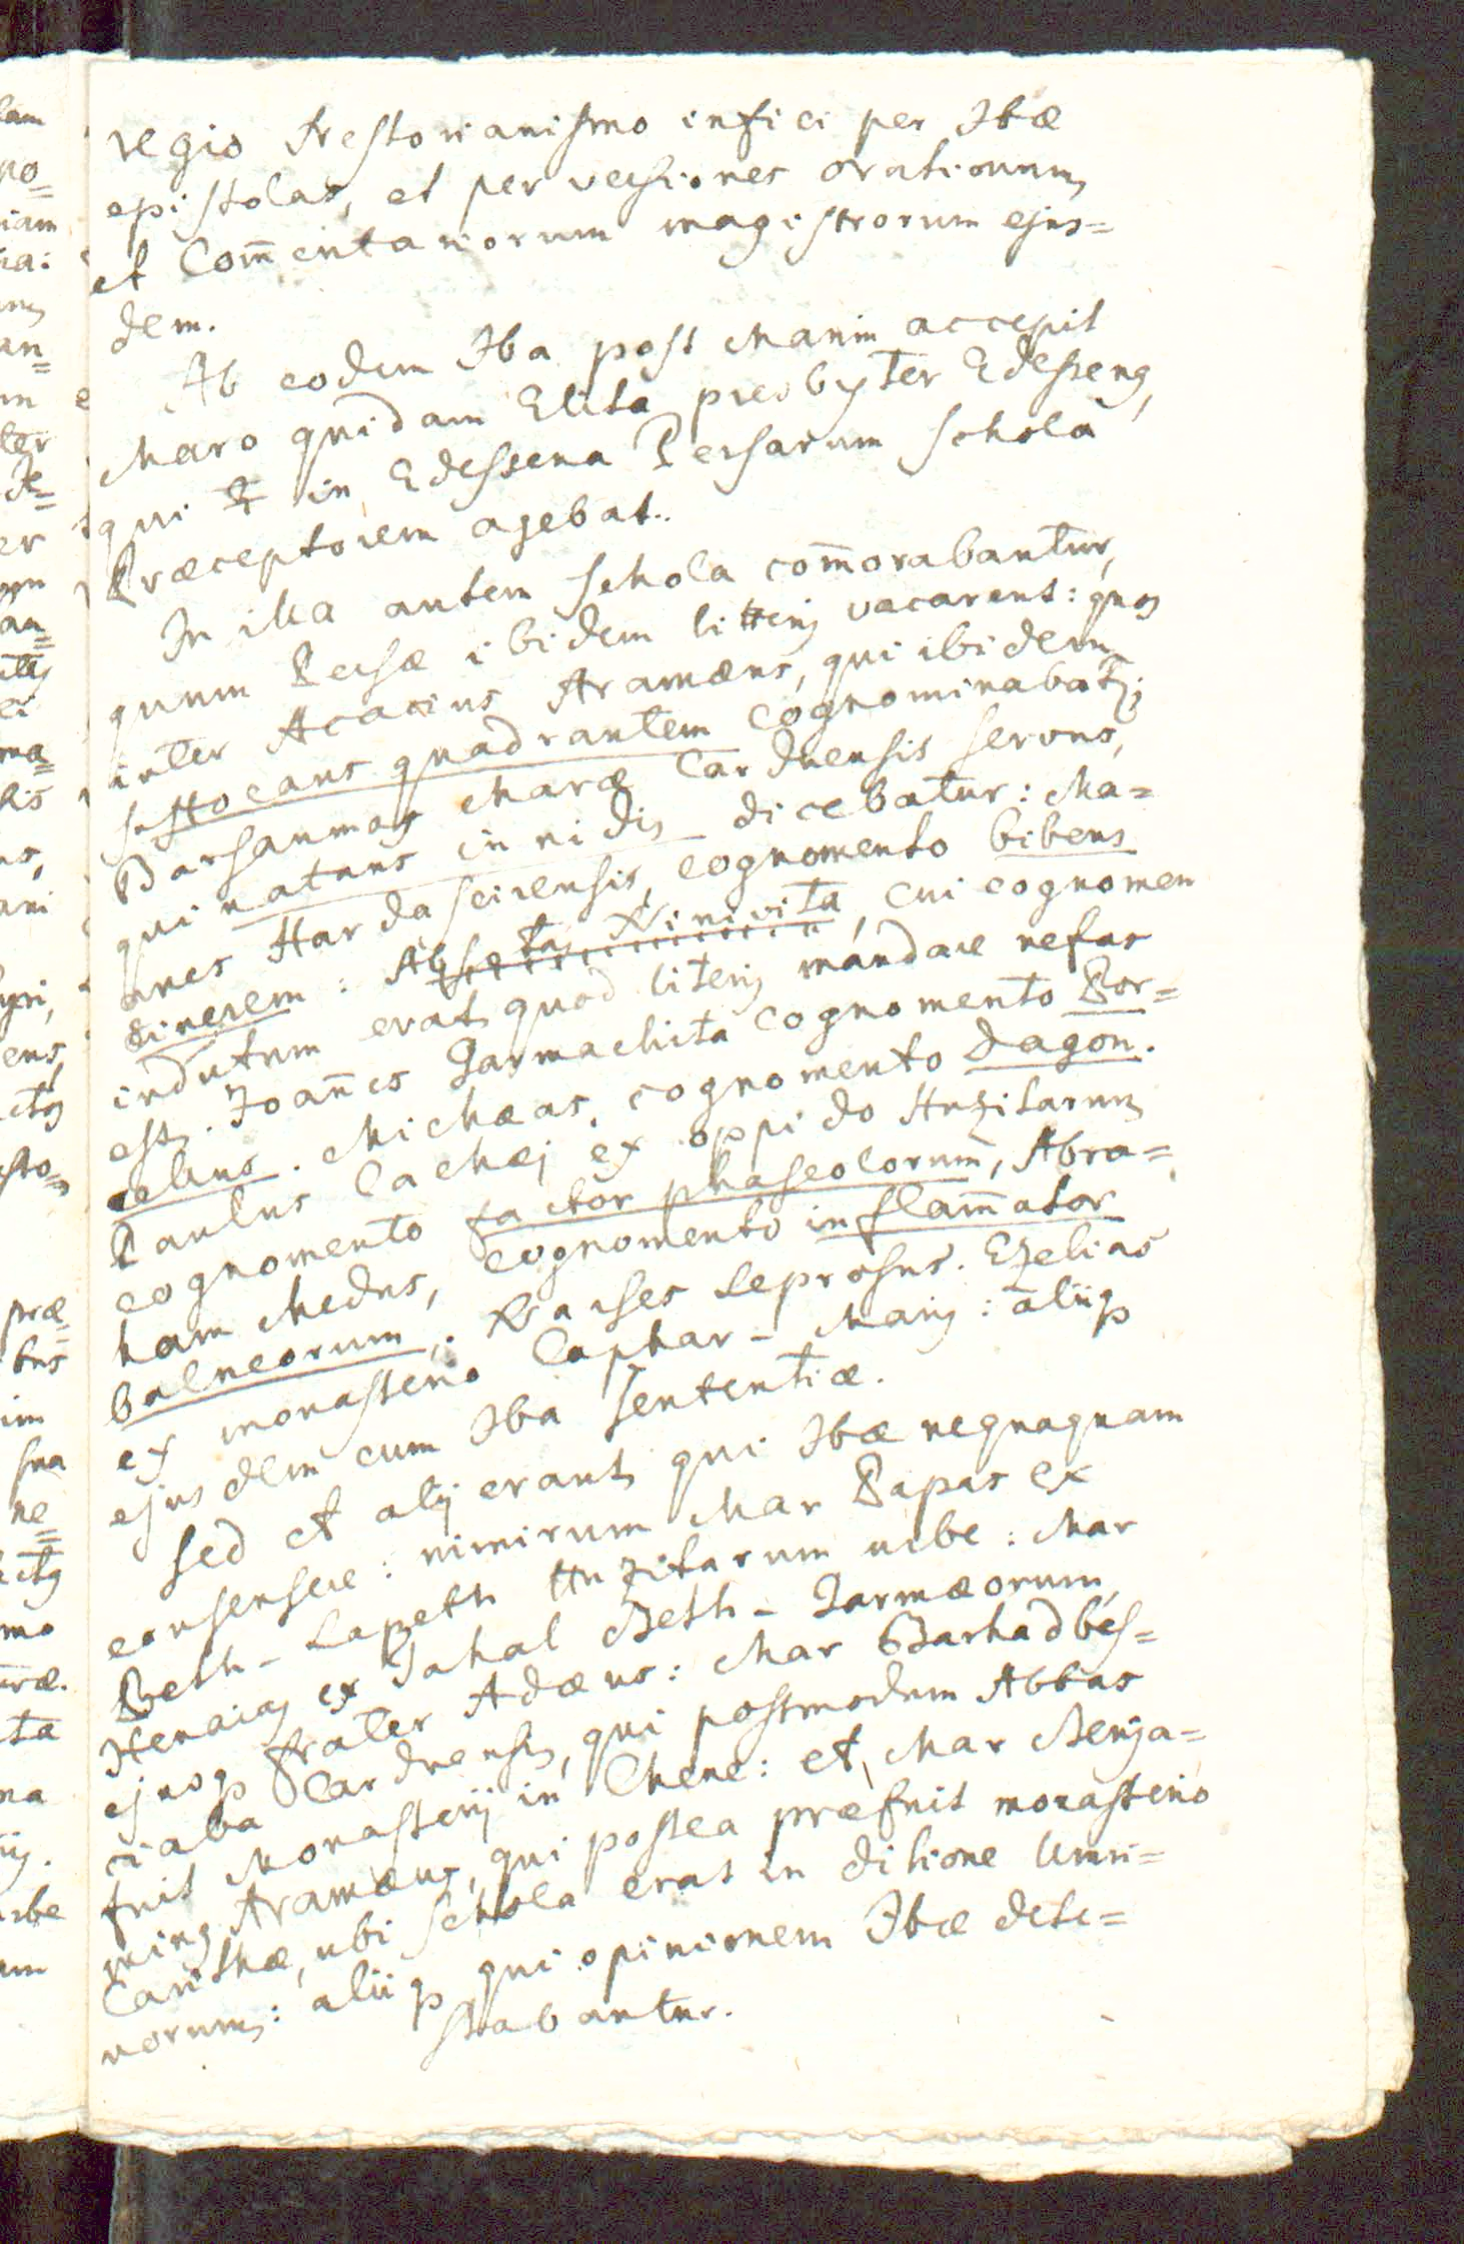 regio Nestorianismo infici per Ibæ
epistolas, et per versiones orationum,
et Com̄entariorum magistrorum ejus=
dem.
Ab eodem Iba post Marim accepit
Maro quidam Elita presbyter Edesseng,
qui in Edessena Persarum schola
Præceptorem agebat.
In illa autem schola com̄orabantur,
quum Persæ ibidem litteris vacarent: quos
inter Acacius Aramæus, qui ibidem
suffocans quadrantem cognominabatr;
Barsaumas Maræ Carduensis servus,
qui natans in nidis dicebatur: Ma=
anes Hardascirensis, cognomento bibens
cinerem: Absotas Ninivita, cui cognomen
indutum erat, quod literis mandare nefas
est. Joan̄es Garmachita cognomento Por=
cellus. Michæas, cognomento dagon.
Paulus Cachæj ex oppido Huzitarum
cognomento factor phaseolorum, Abra=
ham Medus, cognomento inflam̄ator
balneorum; Narses Leprosus. Ezelias
ex monasterio Caphar-Maris: aliiq
ejusdem cum Iba sententiæ.
Sed et alij erant, qui Ibæ nequaquam
consensere: nimirum Mar Papas ex
Beth-Lapeth Huzitarum urbe: Mar
Xenaias ex Tahal Beth-Garmæorum,
ejusq frater Adæus: Mar Barhadbes=
ciaba Carduensis, qui postmodum Abbas
fuit Monasterij in Chene: et, Mar Benja=
ming Aramæus, qui postea præfuit monasterio
Carithæ, ubi schola erat in ditione Umri=
norum: aliiq qui opinionem Ibæ dete=
stabantur.